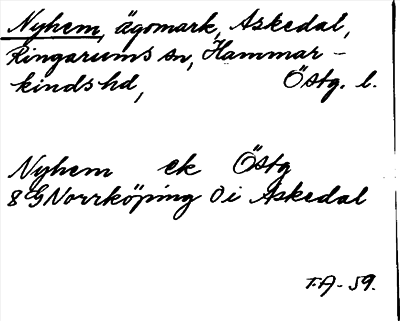 Nyhem, ägomark, Askedal,
Ringarums sn, Hammar-
kinds hd, Östg. l.
Nyhem ek Östg
8G Norrköping Öi Askedal
T.A-59.